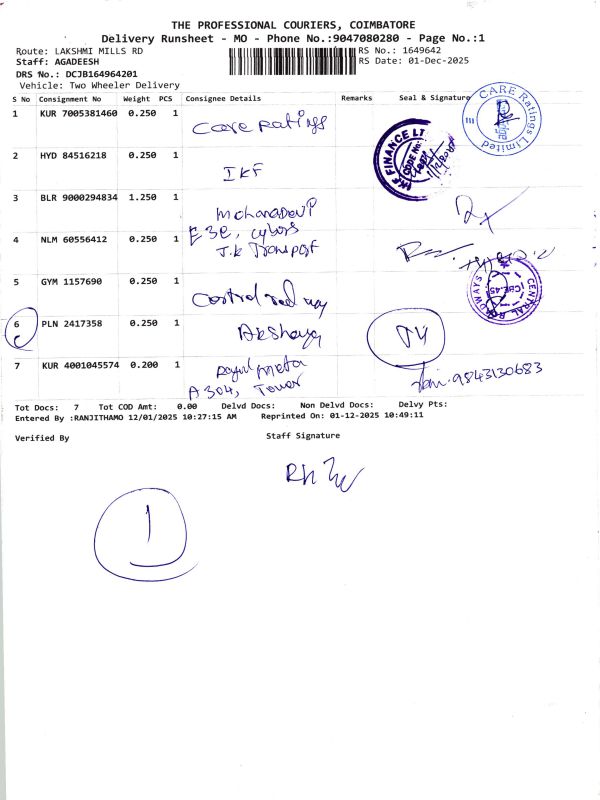 THE PROFESSIONAL COURIERS, COIMBATORE
Delivery Runsheet - MO - Phone No.:9047080280 - Page No.:1
Route: LAKSHMI MILLS RD RS No.: 1649642
Staff: AGADEESH RS Date: 01-Dec-2025
DRS No.: DCJB164964201
Vehicle: Two Wheeler Delivery
S No Consignment No Weight PCS Consignee Details Remarks Seal & Signature
CARE Ratings Limited
1 KUR 7005381460 0.250 1 Care Ratings
IKF FINANCE LT
CODE No:
2 HYD 84516218 0.250 1 IKF
3 BLR 9000294834 1.250 1
E3E,
4 NLM 60556412 0.250 1 J.K Transport
5 GYM 1157690 0.250 1
CENTRAL ROADWAYS
CBE-45
6 PLN 2417358 0.250 1 Akshaya
7 KUR 4001045574 0.200 1
A 304, Tower 9843130683
Tot Docs: 7 Tot COD Amt: 0.00 Delvd Docs: Non Delvd Docs: Delvy Pts:
Entered By :RANJITHAMO 12/01/2025 10:27:15 AM Reprinted On: 01-12-2025 10:49:11
Verified By Staff Signature
1